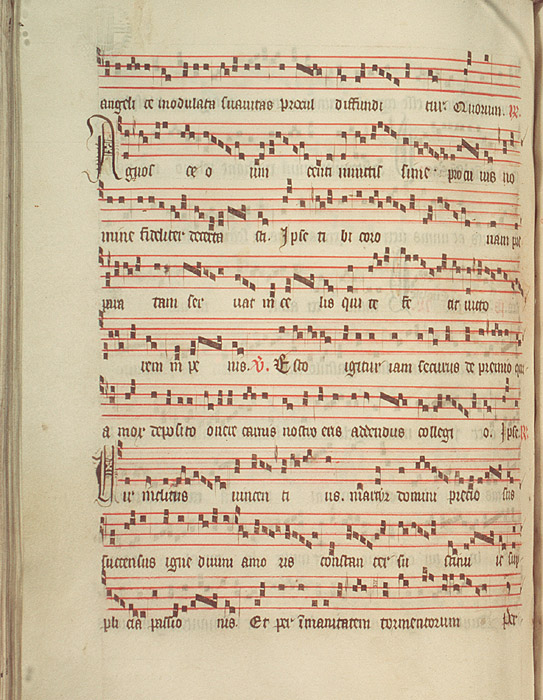 angeli ce modulata suavitas procul diffundi tur Quorum. R.
Agnos ce o vin centi invictis sime pro cu ius no
mine fideliter decerta sti. Ipse ti bi coro nam pre
para tam ser vat in ce lis qui te fe cit victo
rem in pe nis. V. Esto igitur iam securus de premio
a mox deposito onere carnis nostro eris addendus collegi o. Ipse R.
Vir inclitus vincen ti us. martir domini precio sus
succensus igne divini amo ris constan ter su stinu it sup
pli cia passio nis Et per immanitatem tormentorum per